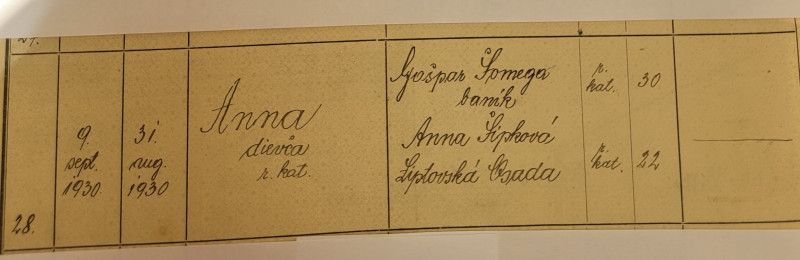 27.
28.
9.
sept.
1930.
31.
aug.
1930
Anna
dievča
r. kat.
Gošpar Šomega
baník
Anna Šipková
Liptovská Osada
r.
kat.
r.
kat.
30
22